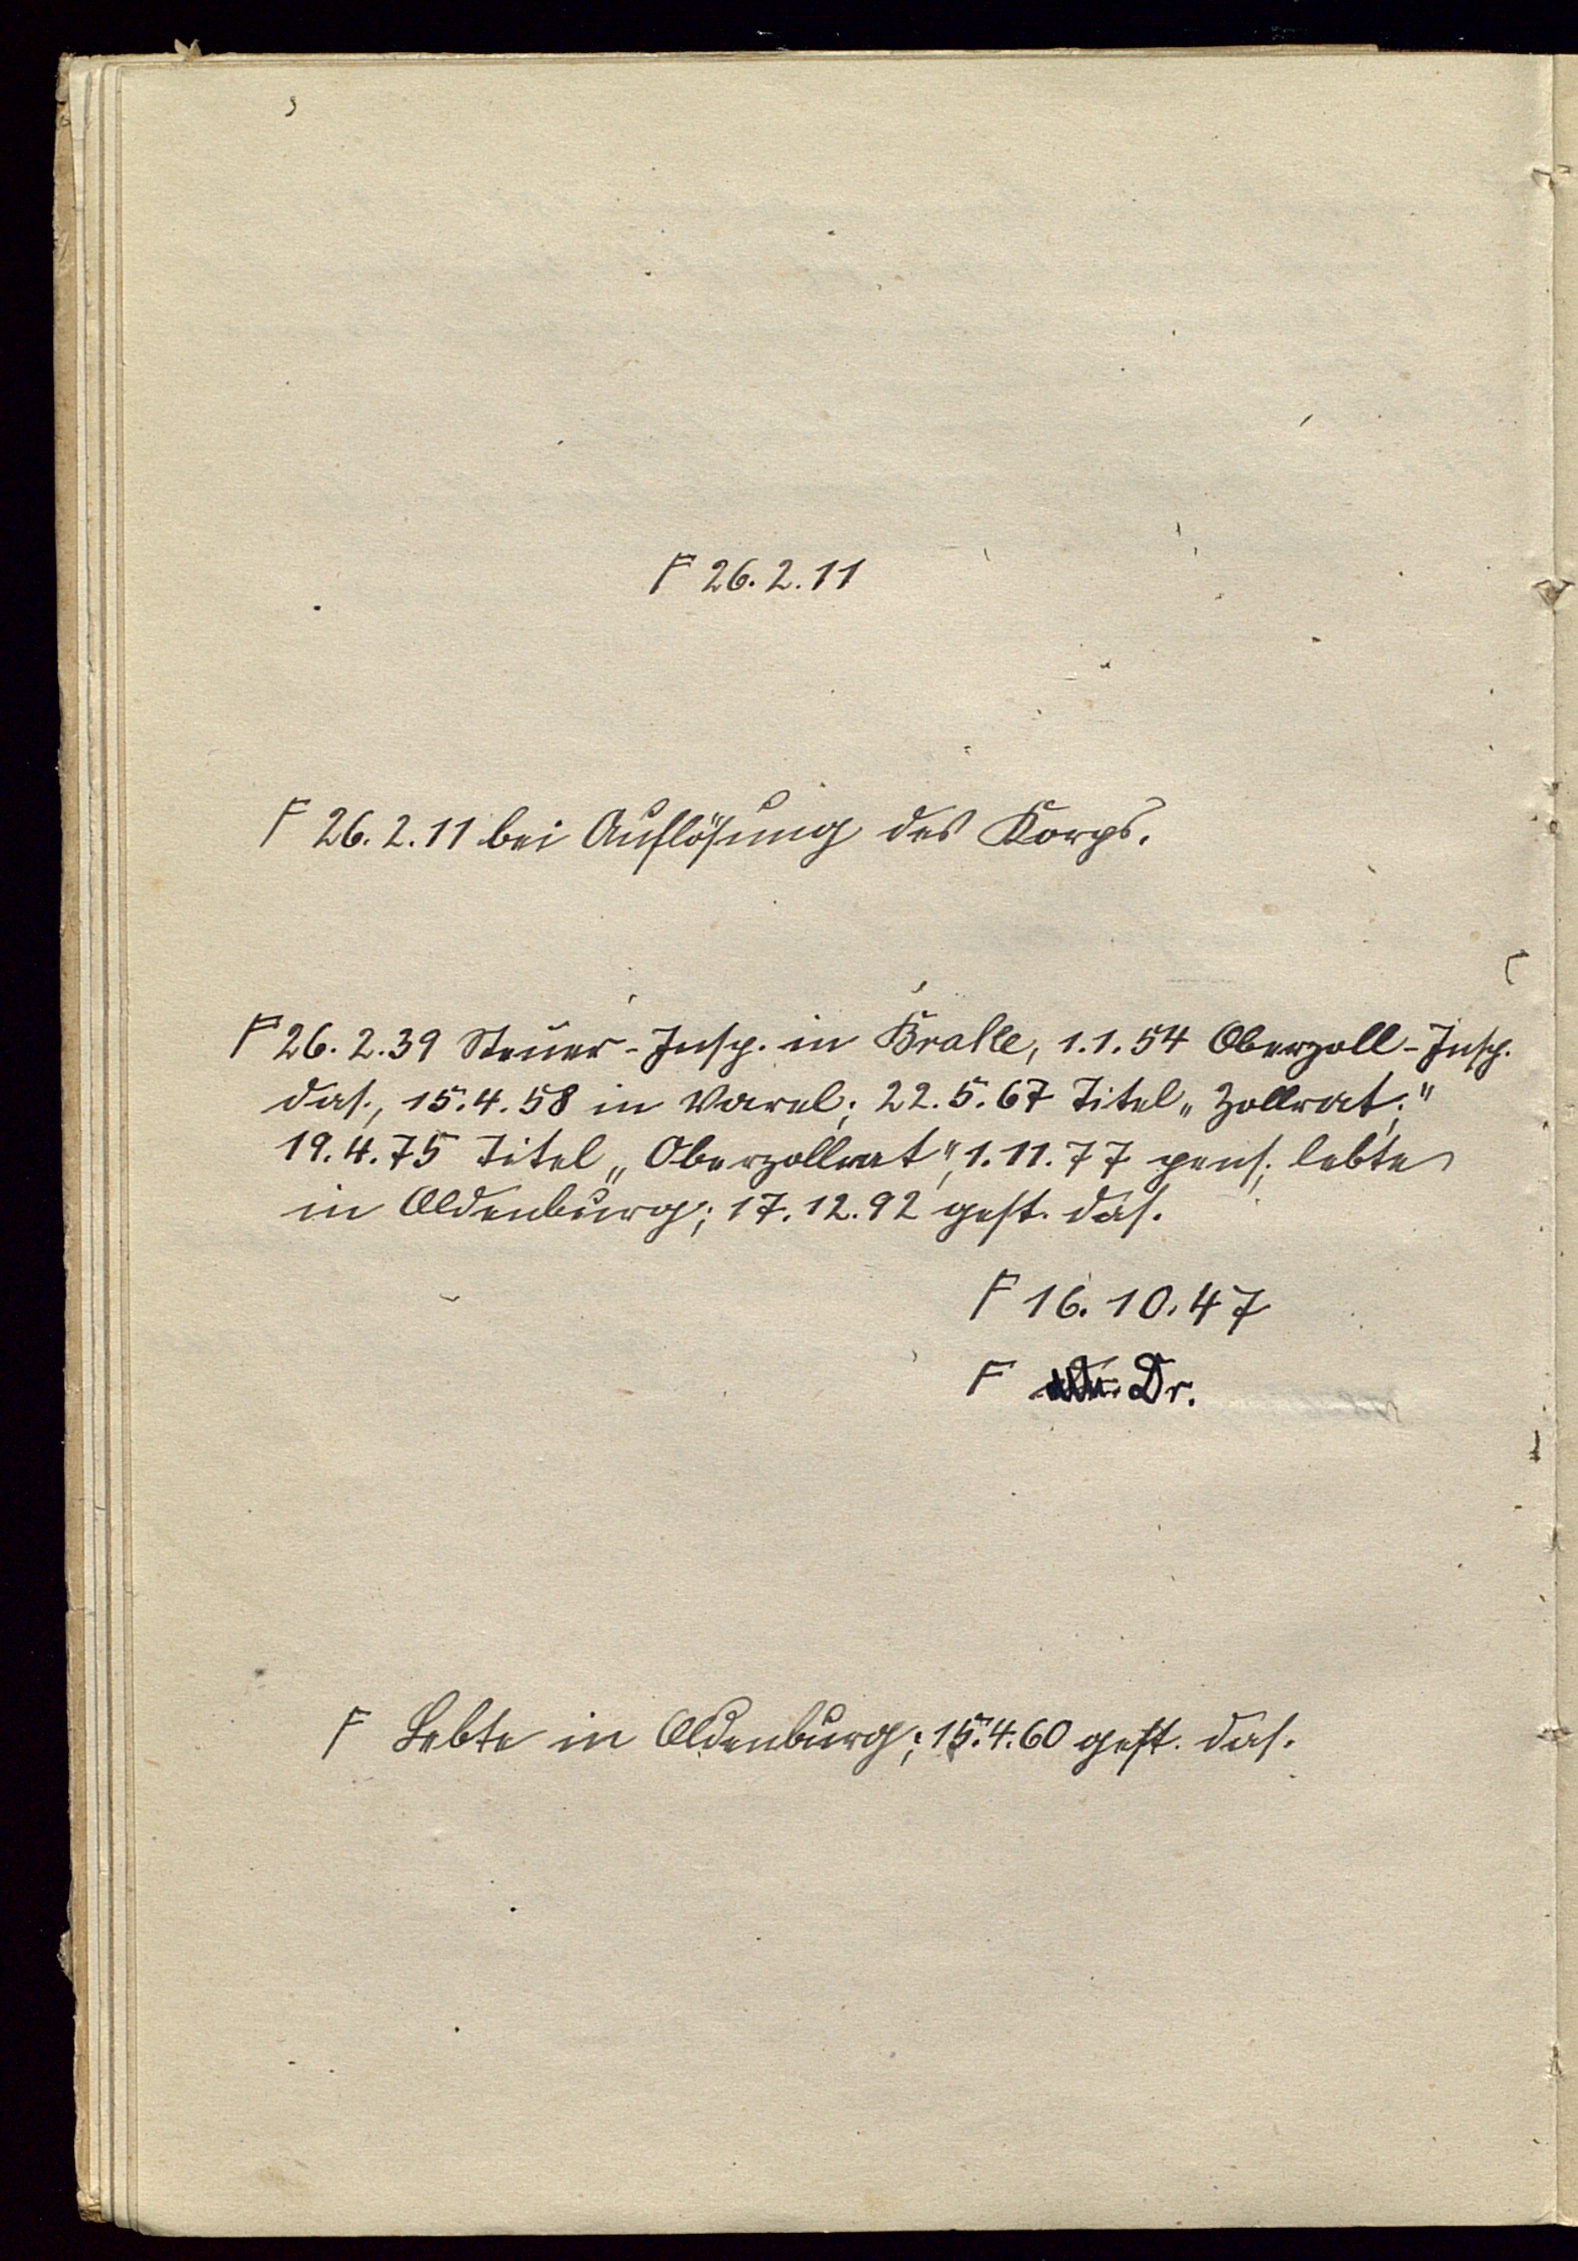 F 26. 2. 11
F 26. 2. 11 bei Auflösung des Korps.
F 26. 2. 39 Steuer-Insp. in Brake, 1. 1. 54 Oberzoll-Insp.
das., 15. 4. 58 in Varel; 22. 5. 67 Titel „Zollrat;"
19. 4. 75 Titel „Oberzollrat", 1. 11. 77 pens; lebte
in Oldenburg; 17. 12. 92 gest. das.
F 16. 10. 47
F Dr.
F Lebte in Oldenburg; 15. 4. 60 gest. das.